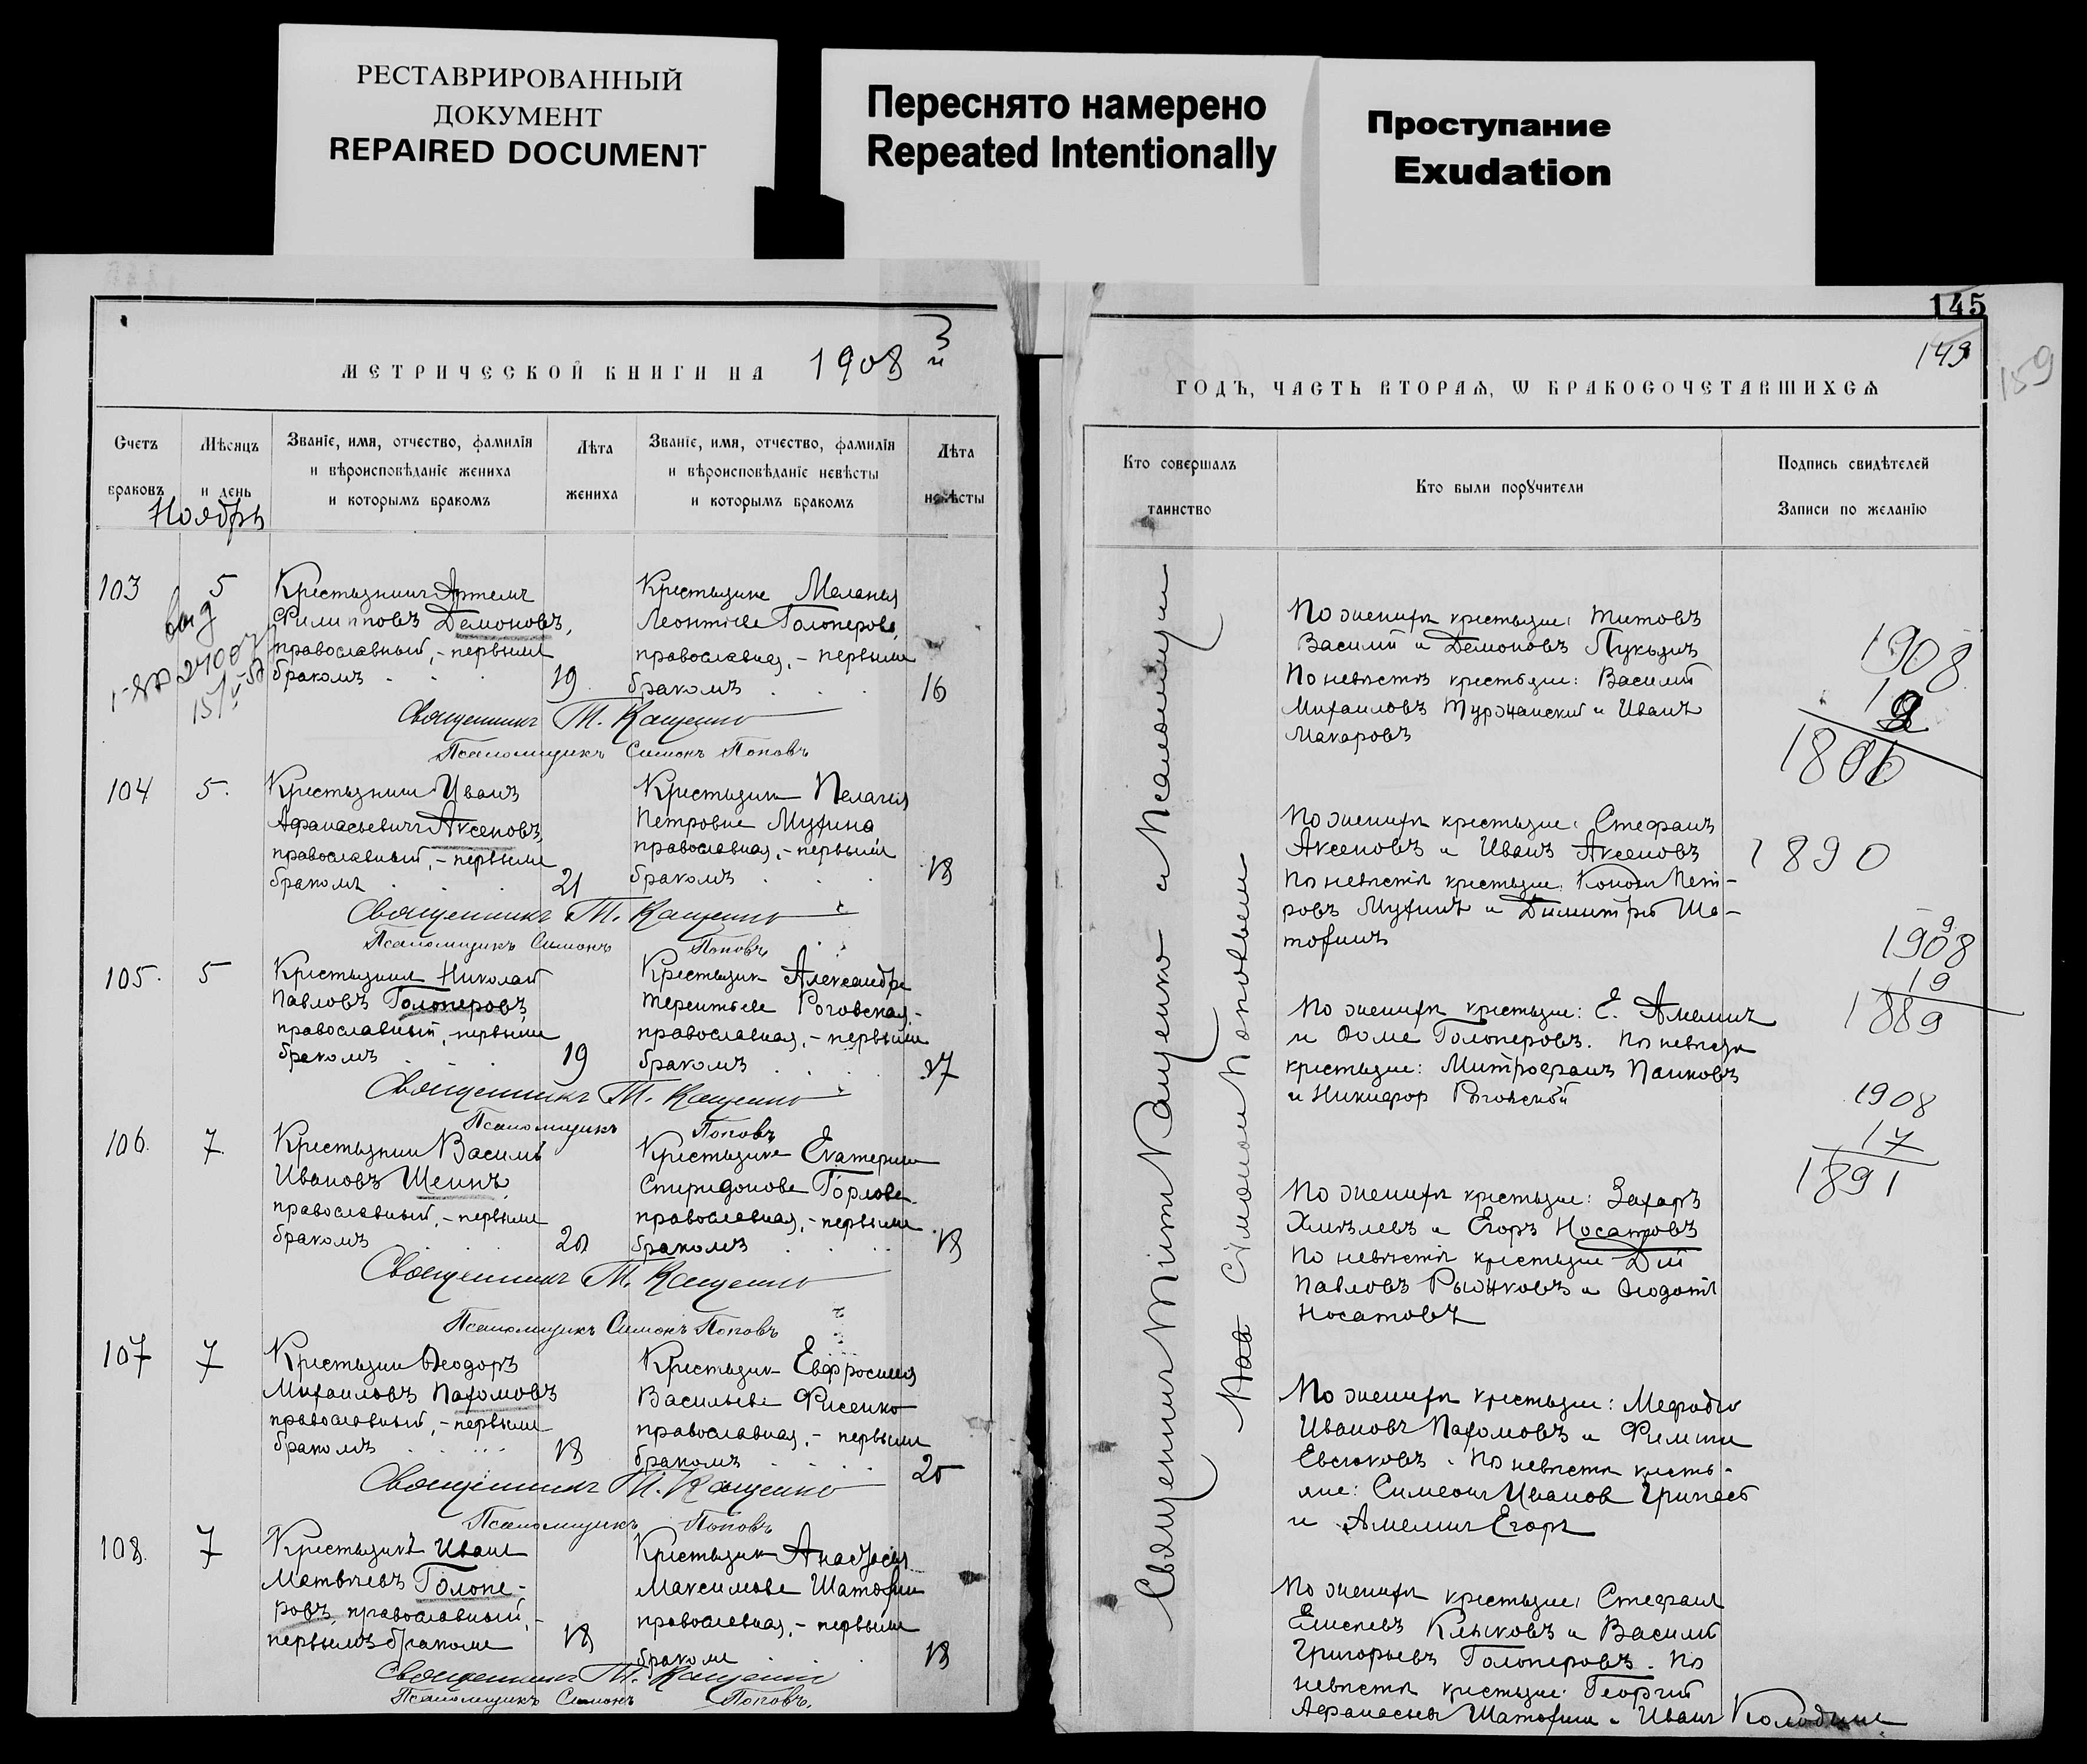 РЕСТАВРИРОВАННЫЙ
ДОКУМЕНТ
REPAIRED DOCUMENT
Переснято намерено
Repeated Intentionally
Проступание
Exudation
МЕТРИЧЕСКОЙ КНИГИ НА 1908й
Счетъ браковъ
Мѣсяцъ и день
Званіе, имя, отчество, фамилія
и вѣроисповѣданіе жениха
и которымъ бракомъ
Лѣта
жениха
Званіе, имя, отчество, фамилія
и вѣроисповѣданіе невѣсты
и которымъ бракомъ
Лѣта
невѣсты
Ноябрь
103
5
Крестьянинъ Артемъ
Филипповъ Демоновъ,
православный, - первымъ
бракомъ
19
Крестьянка Меланія
Леонтьева Голоперова,
православная, - первымъ
бракомъ
16
Священникъ Т. Кащенко
Псаломщикъ Симонъ Поповъ
104
5.
Крестьянинъ Иванъ
Афанасьевичъ Аксеновъ,
православный, - первымъ
бракомъ
21
Крестьянка Пелагія
Петровна Мухина
православная, - первымъ
бракомъ
18
Священникъ Т. Кащенко
Псаломщикъ Симонъ Поповъ
105.
5
Крестьянинъ Николай
Павловъ Голоперовъ,
православный, первымъ
бракомъ
19
Крестьянка Александра
Терентьева Роговская,
православная, - первымъ
бракомъ
17
Священникъ Т. Кащенко
Псаломщикъ Поповъ
106.
7
Крестьянинъ Василій
Ивановъ Шеинъ,
православный, - первымъ
бракомъ
20
Крестьянка Екатерина
Спиридонова Горлова
православная, - первымъ
бракомъ
18
Священникъ Т. Кащенко
Псаломщикъ Симонъ Поповъ
107
7
Крестьянинъ Ѳеодоръ
Михаиловъ Пахомовъ
православный, - первымъ
бракомъ
18
Крестьянка Евфросинія
Васильева Фисенко
православная, - первымъ
бракомъ
20
Священникъ Т. Кащенко
Псаломщикъ Поповъ
108.
7
Крестьянинъ Иванъ
Матвѣевъ Голопе-
ровъ, православный, -
первымъ бракомъ
18
Крестьянка Анастасія
Максимова Шатохина
православная, - первымъ
бракомъ
18
Священникъ Т. Кащенко
Псаломщикъ Симонъ Поповъ.
145
149
159
ГОДЪ, ЧАСТЬ ВТОРАЯ, Ѡ БРАКОСОЧЕТАВШИХСЯ
Кто совершалъ
таинство
Кто были поручители
Подпись свидѣтелей
Записи по желанію
Священникъ Титъ Кащенко и Псаломщикъ
Симономъ Поповымъ
По женихѣ крестьяне: Титовъ
Василій и Демоновъ Лукьянъ
По невѣстѣ крестьяне: Василій
Михаиловъ и Иванъ
Макаровъ
По женихѣ крестьяне: Стефанъ
Аксеновъ и Иванъ Аксеновъ
По невѣстѣ крестьяне: Пет-
ровъ Мухинъ и Димитрій Ша-
тохинъ
По женихѣ крестьяне: Е. Амелинъ
и Ѳома Голоперовъ. По невѣстѣ
крестьяне: Митрофанъ Панковъ
и Никифор Роговской
По женихѣ крестьяне: Захаръ
Хмѣлевъ и Егоръ Носатовъ
По невѣстѣ крестьяне
Павловъ Рыжковъ и Ѳеодотъ
Носатовъ
По женихѣ крестьяне: Мефодій
Ивановъ Пахомовъ и Филиппъ
Евсюковъ. По невѣстѣ кресть-
яне: Симеонъ Иванов
и Амелинъ Егоръ
По женихѣ крестьяне: Стефанъ
Елисеевъ Клыковъ и Василій
Григорьевъ Голоперовъ. По
невѣстѣ крестьяне: Георгій
Афанасьевъ Шатохинъ и Иванъ
1908
1890
1908
19
1889
1908
17
1891